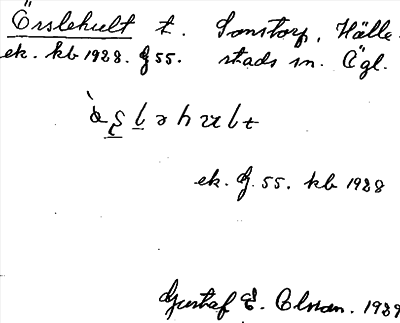 Örslehult t. Sonstorp, Hälle-
ek. kb 1928. G 55. stads sn. Ögl.
ek. G. 55. kb 1928
Gustaf E. Olsson. 1929